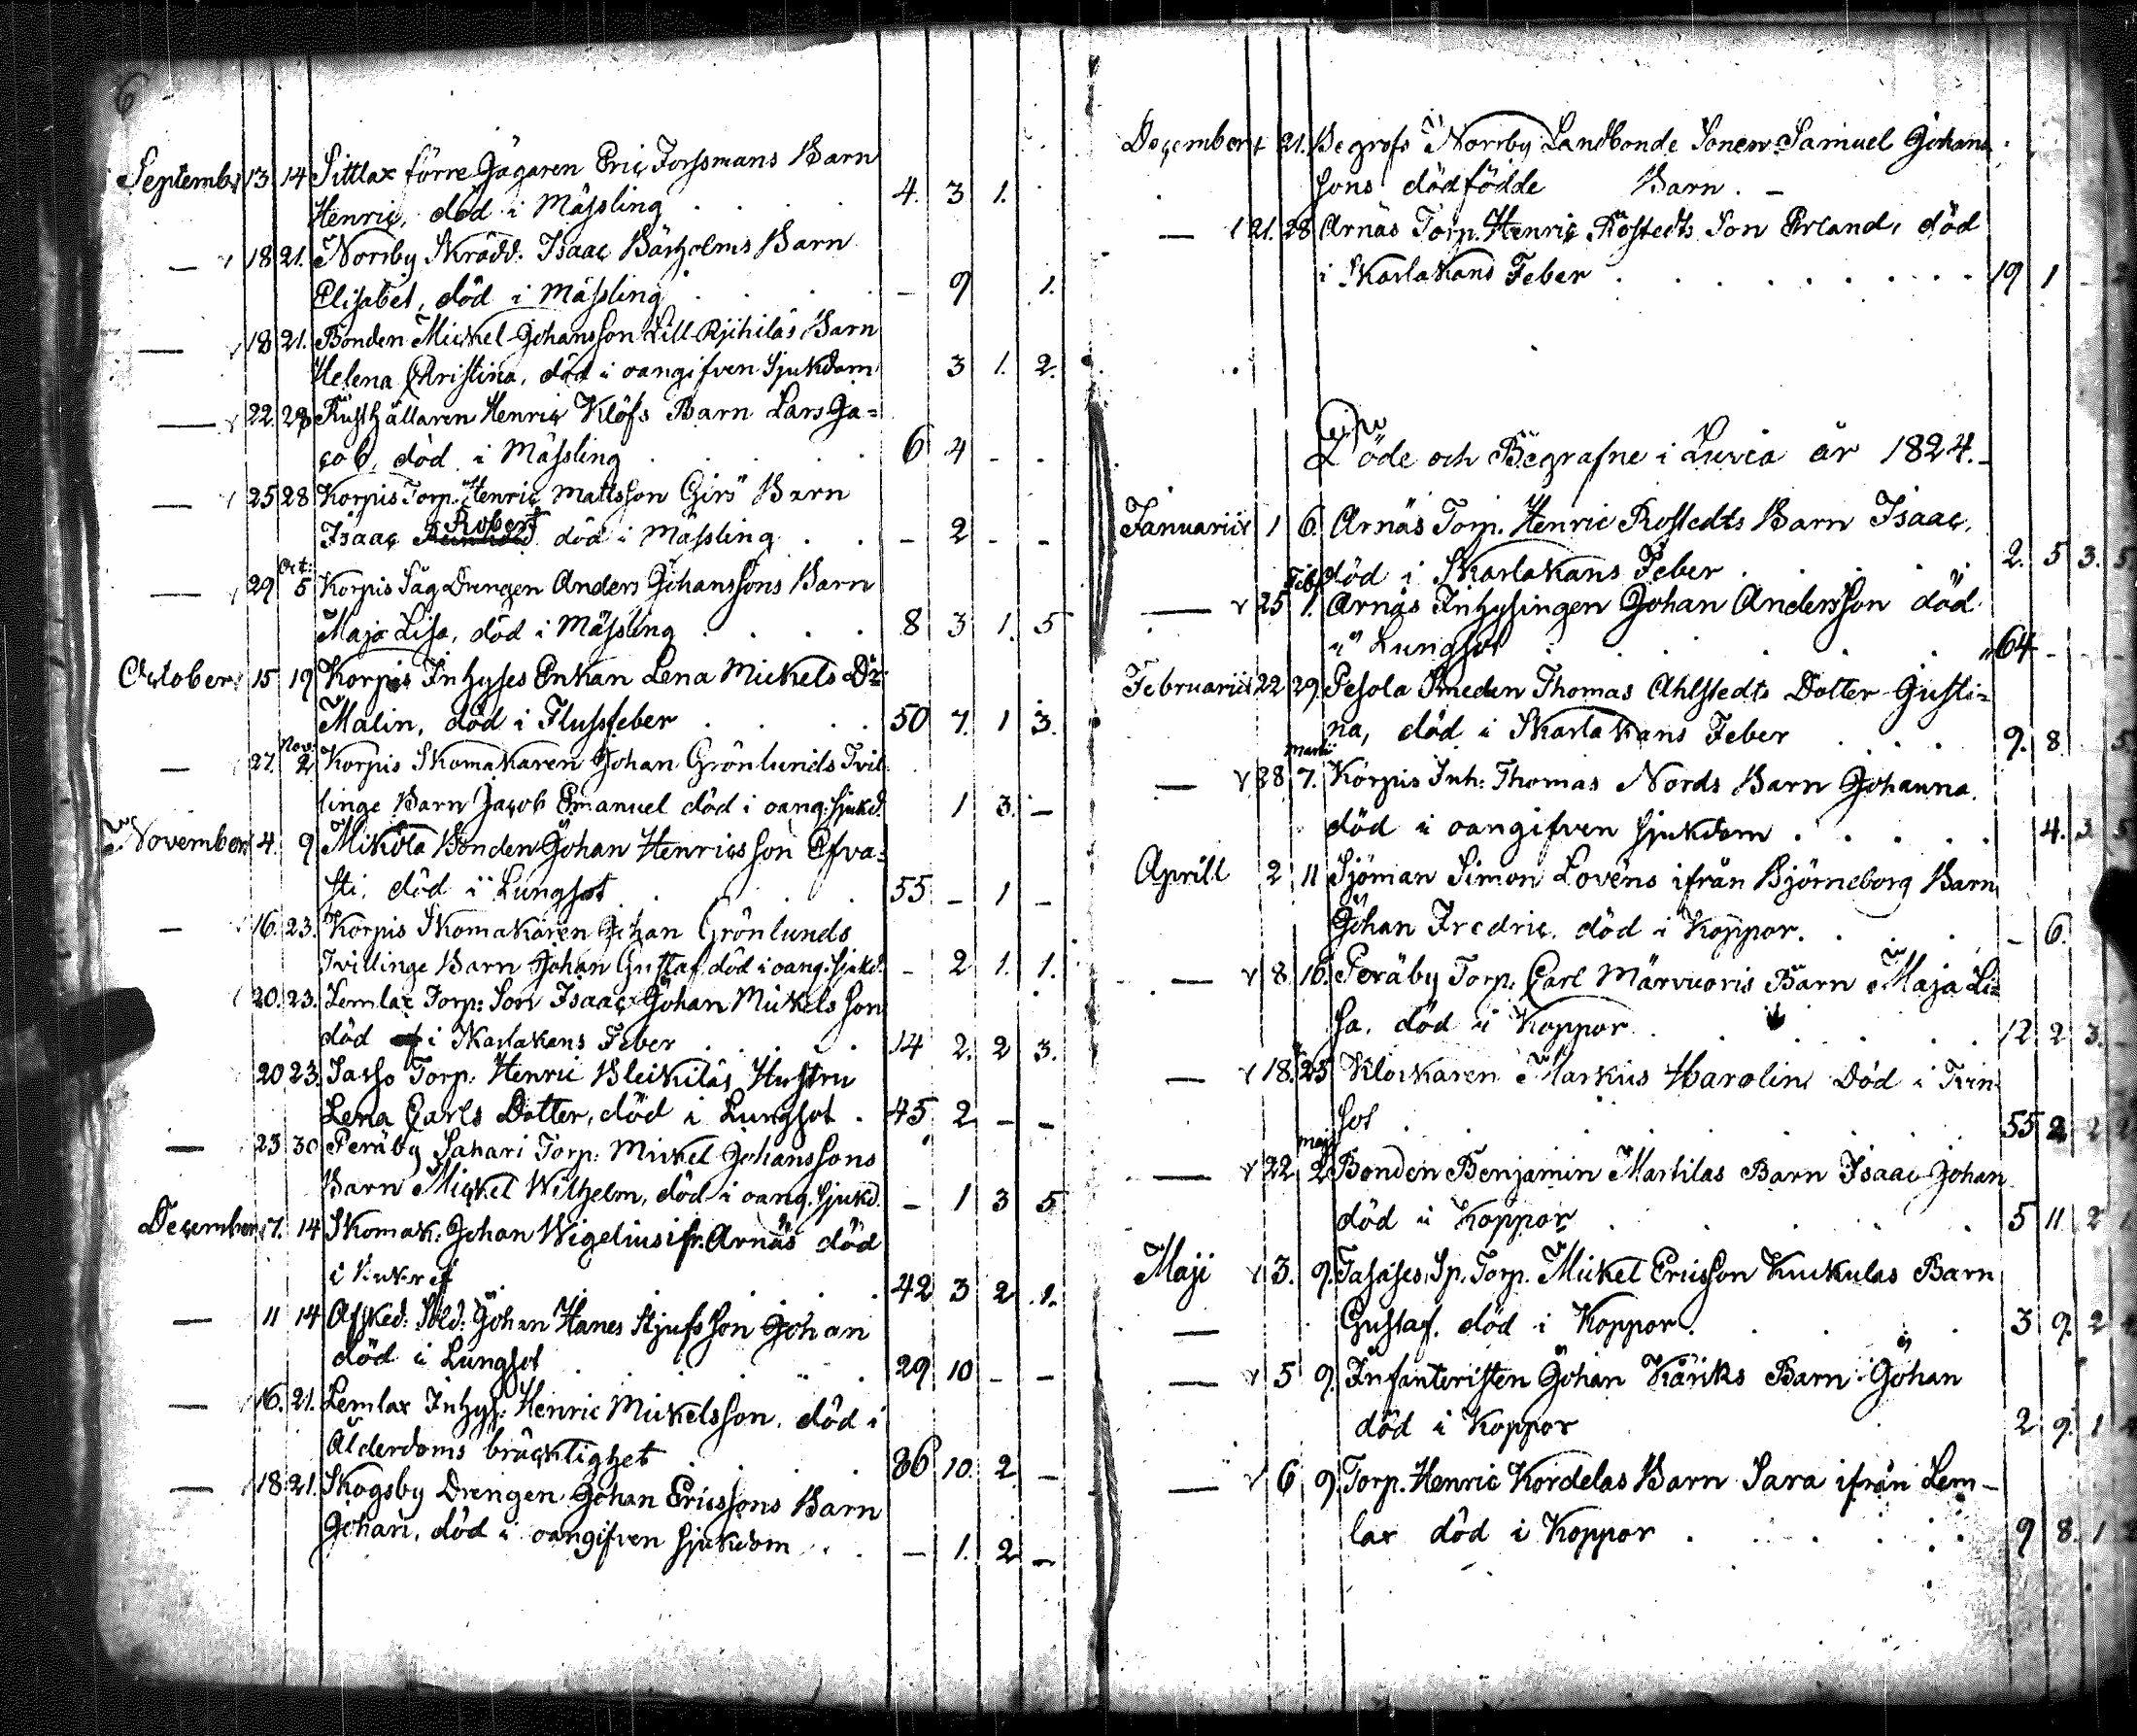 6
September 13 14 Sittlax förre Jägaren Eric Forssmans Barn
Henric, död i Mässling 4. 3 1.
— 18 21. Norrby Skrädd. Isaac Bärholms Barn
Elisabet, död i Mässling — 9 1.
— 18 21. Bonden Mickel Johansson Lill-Rjihiläs Barn
Helena Christina, död i oangifven Sjukdom 3 1. 2.
— 22. 28 Rusthållaren Henric Klöfs Barn Lars Ja=
cob, död i Mässling 6 4 - -
— 25 28 Korpis Torp. Henric Mattsson Girs Barn
Isaac Robert död i Mässling - 2 - -
Oct:
— 29 5 Korpis Såg Drengen Anders Johanssons Barn
Maja Lisa, död i Mässling 8 3 1. 5
October 15 19 Korpis Inhyses Enkan Lena Mickels Dr.
Malin, död i Flussfeber 50 7. 1 3.
Nov:
— 27. 2 Korpis Skomakaren Johan Grönlunds Tvil
linge Barn Jacob Emanuel död i oang. sjukd. 1 3. —
November 4. 9 Mikola Bonden Johan Henricsson Efva=
sti, död i Lungsot 55 - 1 -
— 16. 23. Korpis Skomakaren Johan Grönlunds
Tvillinge Barn Johan Gustaf död i oang. sjukd. - 2 1. 1.
20. 23. Lemlax Torp: Son Isaac Johan Mickelsson
död i Skarlakans Feber 14 2. 2 3.
20 23. Sasso Torp: Henric Bleikiläs Hustru
Lena Carls Dotter, död i Lungsot 45 2 - -
— 23 30 Peräby Sahari Torp: Mickel Johanssons
Barn Mickel Wilhelm, död i oang. sjukd. - 1 3 5
December 7. 14 Skomak: Johan Wigelius ifr. Arnäs död
i 42 3 2 1.
— 11 14 Afsked: Sold: Johan Hanes Styfsson Johan
död i Lungsot 29 10 - -
— 16. 21. Lemlax Inhys: Henric Mickelsson, död i
Ålderdoms bräcklighet 86 10. 2 -
— 18 21. Skogsby Drengen Johan Ericssons Barn
Johan, död i oangifven sjukdom — 1. 2 -
December 21. Begrofs i Norrby Landbonde Sonen Samuel Johans
sons dödfödde Barn. -
— 21. 28 Arnäs Torp. Henric Rostedts Son Erland, död
i Skarlakans Feber 19 1 -
Döde och Begrafne i Luvia år 1824.
Januarii 1 6. Arnäs Torp. Henric Rostedts Barn Isaac,
död i Skarlakans Feber 2. 5 3. 5
Feb.
— 25 1. Arnäs Inhysingen Johan Andersson död
i Lungsot 64 - - -
Februarii 22 29. Pesola Smeden Thomas Ahlstedts Dotter Gusti=
na, död i Skarlakans Feber 9. 8 5
Martii
— 28 7. Korpis Inh: Thomas Nords Barn Johanna.
död i oangifven sjukdom 4. 3. 5
Aprill 2 11 Sjöman Simon Lovéns ifrån Björneborg Barn
Johan Fredric. död i Koppor. - 6.
— 8 16. Peräby Torp. Carl Märvuoris Barn Maja Li=
sa. död i Koppor 12. 2 3.
— 18. 25 Klockaren Markus Harolin Död i Tvin
sot 55 2 2
Maji
— 22 2 Bonden Benjamin Martilas Barn Isaac Johan
död i Koppor 5 11 2
Maji 3. 9. Sp. Torp. Mickel Ericsson Kuckulas Barn
— Gustaf. död i Koppor. 3 9. 2
— 5 9. Infanteristen Johan Känks Barn Johan
död i Koppor 2 9. 1
— 6 9. Torp. Henric Kordelas Barn Sara ifrån Lem-
lax död i Koppor 9 8. 1